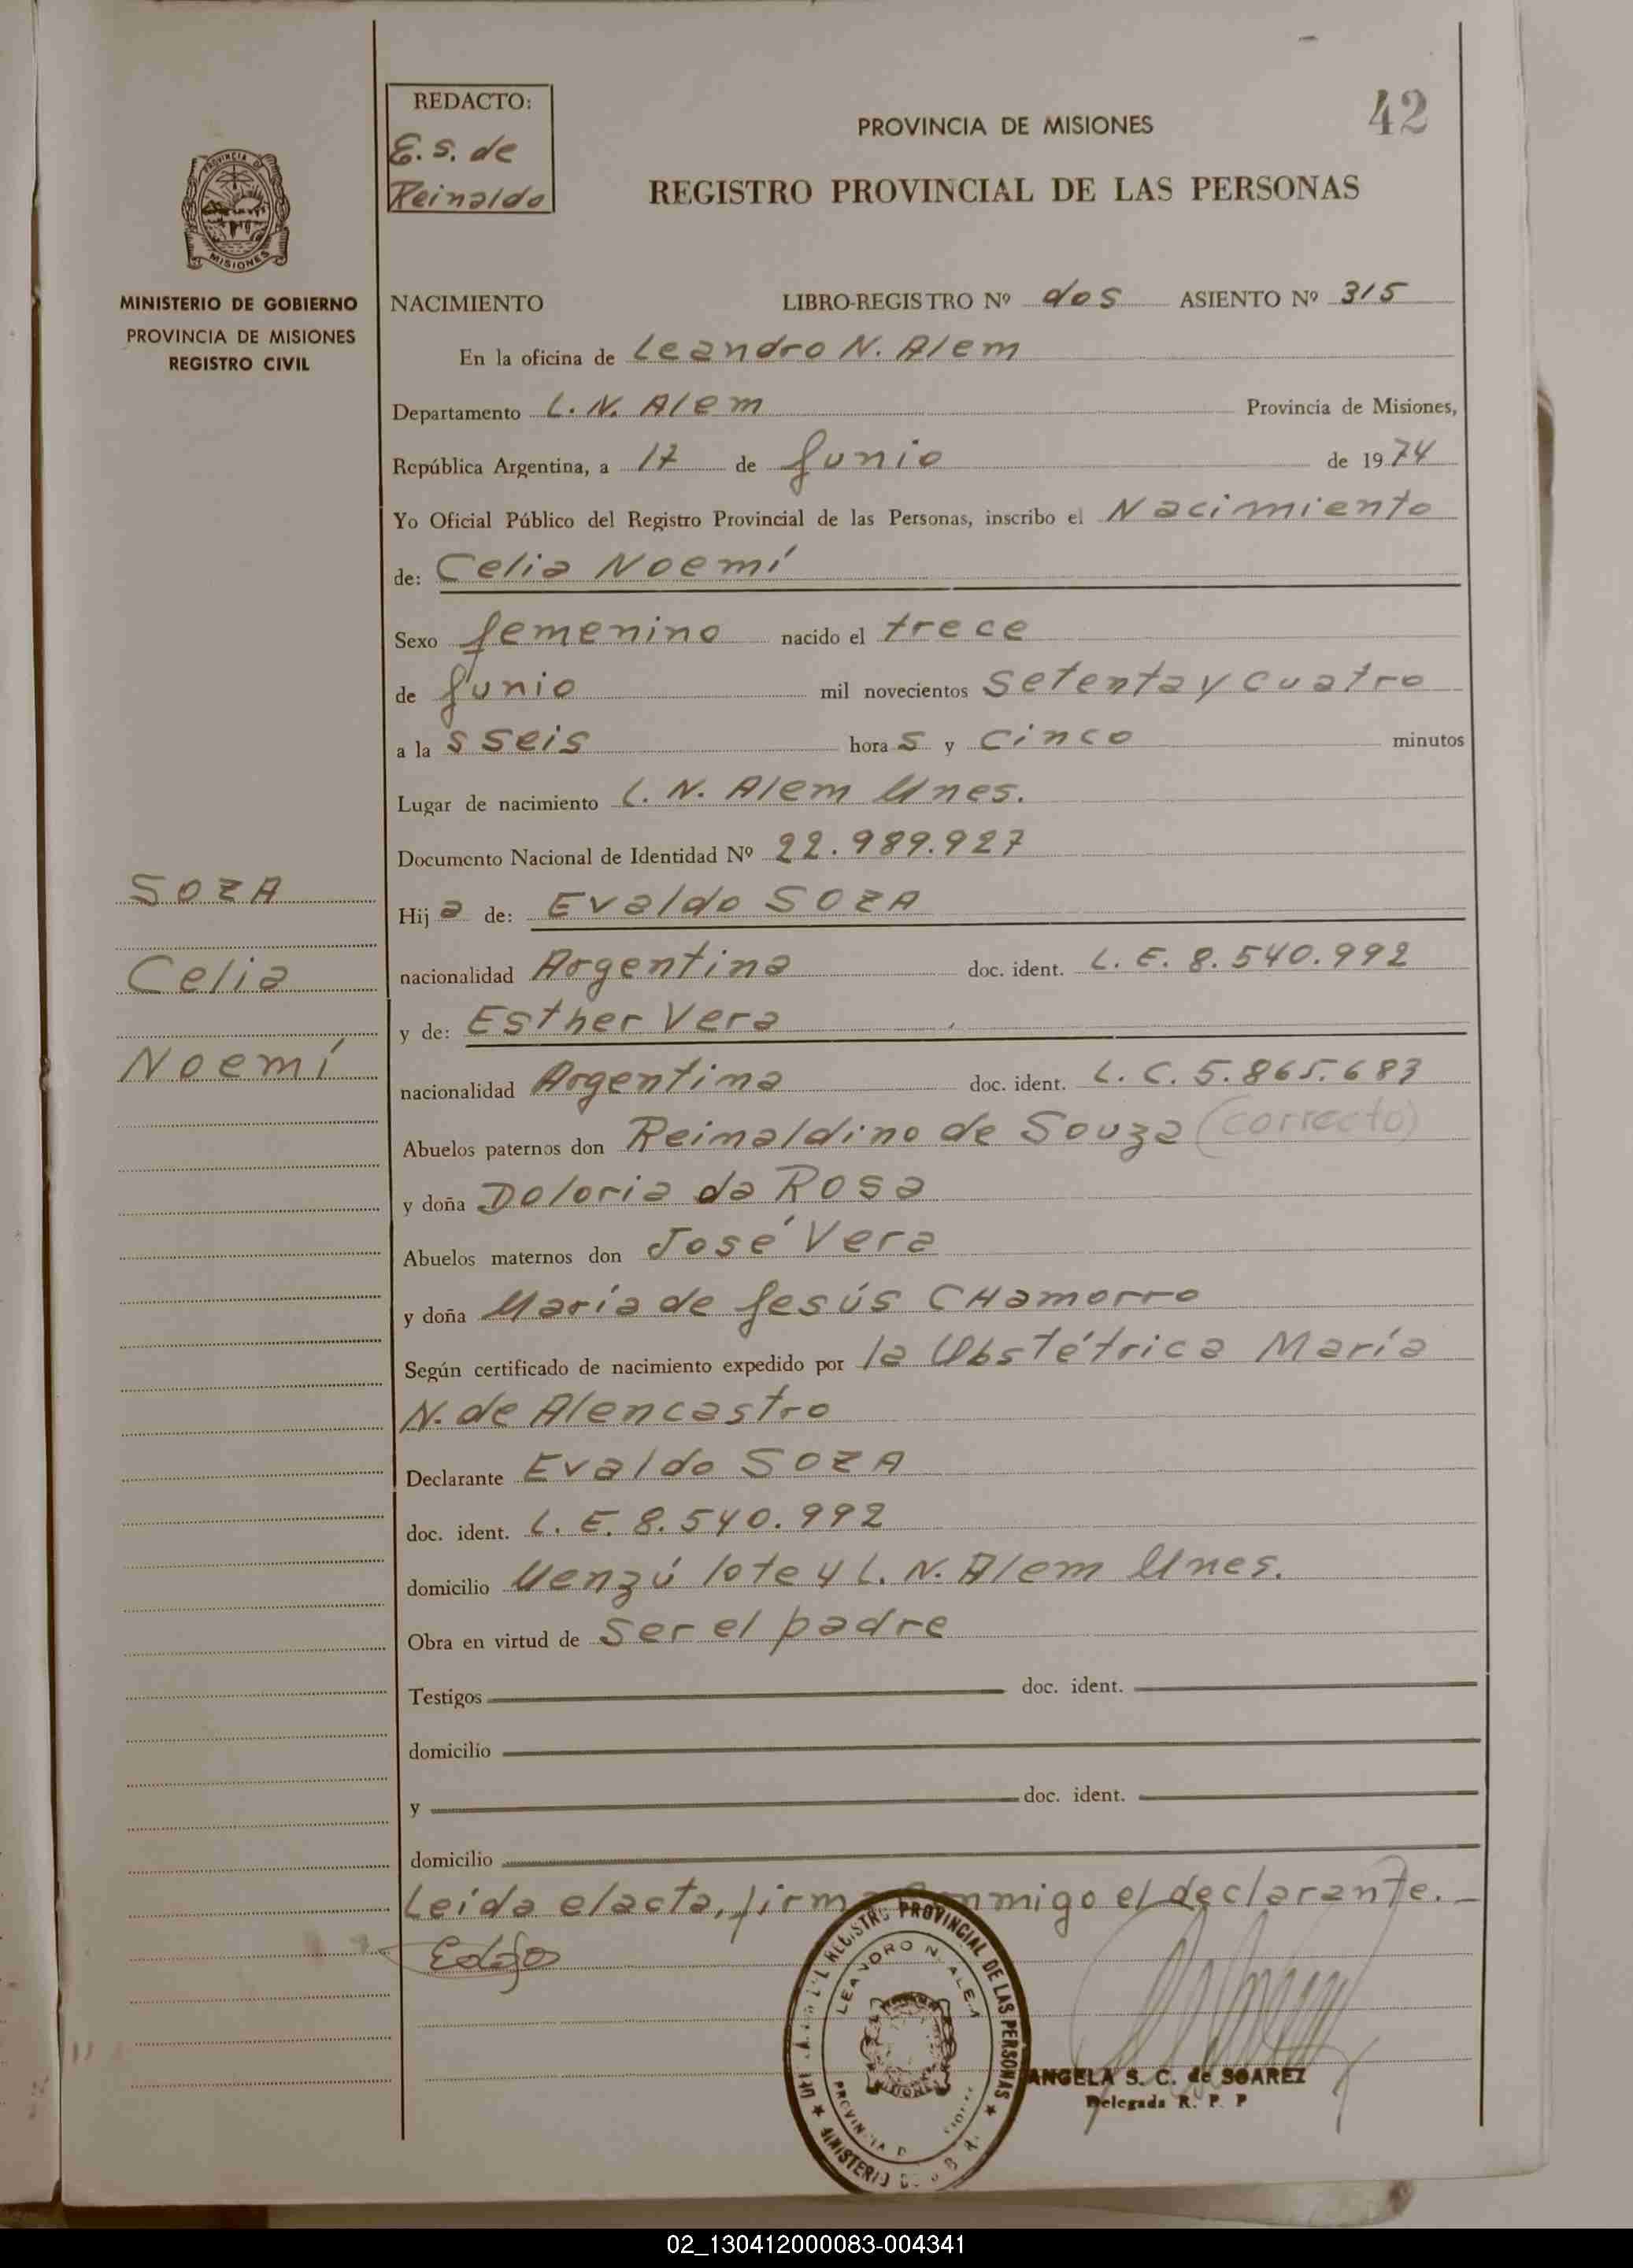 REDACTO:
E. S. de
Reinaldo
42
PROVINCIA DE MISIONES
REGISTRO PROVINCIAL DE LAS PERSONAS
PROVINCIA DE
MISIONES
MINISTERIO DE GOBIERNO
PROVINCIA DE MISIONES
REGISTRO CIVIL
NACIMIENTO LIBRO-REGISTRO Nº dos ASIENTO Nº 315
En la oficina de Leandro N. Alem
Departamento L. N. Alem Provincia de Misiones,
República Argentina, a 17 de Junio de 1974
Yo Oficial Público del Registro Provincial de las Personas, inscribo el Nacimiento
de: Celia Noemí
Sexo femenino nacido el trece
de Junio mil novecientos setenta y cuatro
a las seis horas y cinco minutos
Lugar de nacimiento L. N. Alem Mnes.
Documento Nacional de Identidad Nº 22.989.927
SOZA
Celia
Noemí
Hija de: Evaldo SOZA
nacionalidad Argentina doc. ident. L. E. 8.540.992
y de: Esther Vera
nacionalidad Argentina doc. ident. L. C. 5.865.683
Abuelos paternos don Reinaldino de Souza (correcto)
y doña Doloria da Rosa
Abuelos maternos don José Vera
y doña María de Jesús CHamorro
Según certificado de nacimiento expedido por la Obstétrica María
N. de Alencastro
Declarante Evaldo SOZA
doc. ident. L. E. 8.540.992
domicilio Menzú lote 4 L. N. Alem Mnes.
Obra en virtud de ser el padre
Testigos doc. ident.
domicilio
y doc. ident.
domicilio
Leída el acta, firma conmigo el declarante.
REGISTRO PROVINCIAL DE LAS PERSONAS
LEANDRO N. ALEM
MINISTERIO
ANGELA S. C. de SOAREZ
Delegada R. P. P
02_130412000083-004341